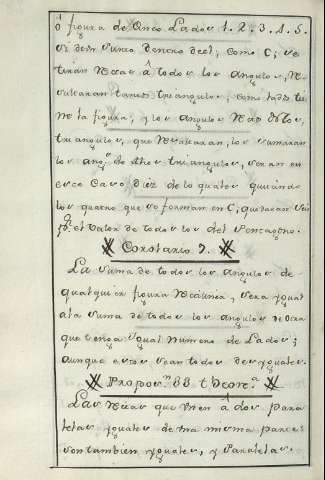 ó figura de Cinco Lados 1. 2. 3. 4. 5.
si desu Punto dentro deel, como C; se
tiran Rectas â todos los Angulos, Re-
sultaran tantos triangulos, como lados tie-
ne la figura, y los Angulos
triangulos, que Resultaran, los sumaran
los ang.s de dhos triangulos, seran en
este Caso diez de los quales quitando
los quatro que se forman en C, quedaran seis
p.r el valor de todos los del Pentagono.
Corolario 2.
La suma de todos los Angulos de
qualquier figura Rectilinea, sera ygual
ala suma de todos los angulos de otra
que tenga ygual numero de Lados;
aunque estos sean todos desyguales.
Propos.n 33 theore.a
Las Rectas que Unen â dos para-
lelas yguales de una misma parte
son tambien yguales, y Paralelas.